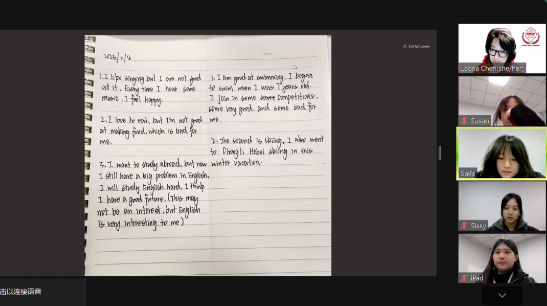 2023/2/3
1. I like singing but I am not good
at it. Every time I hear some
music, I feel happy.
2. I love to eat, but I'm not good
at making food, which is bad for
me.
3. I want to study abroad, but now
I still have a big problem in English,
I will study English hard. I think
I have a good future. (This may
not be an interest, but English
is very interesting to me)
1. I am good at swimming. I began
to swim when I was 7 years old.
I join in some competitions,
some very good, and some bad for
me.
2. The second is skiing, I also went
to Hebei skiing in this
winter vacation.
Exit full screen
Leona Chen(she/her)
Susan
Saila
Sissy
iPad
击以连接语音